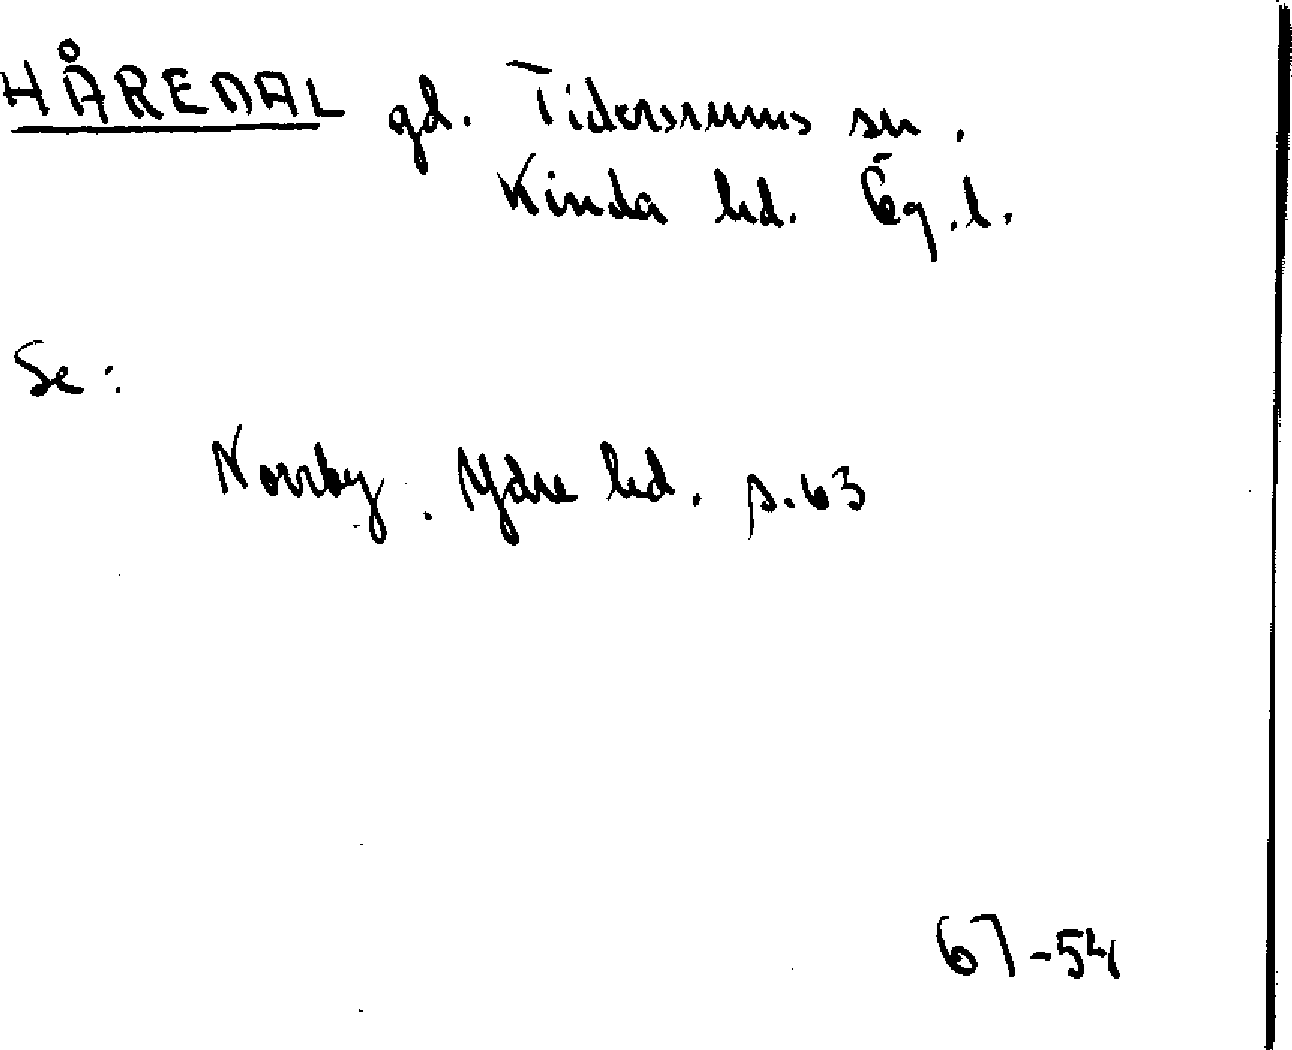 HÅREDAL gd. Tidersrums sn.
Kinda hd. Ög.l.
Se:
Norrby. Ydre hd. s.63
67-54